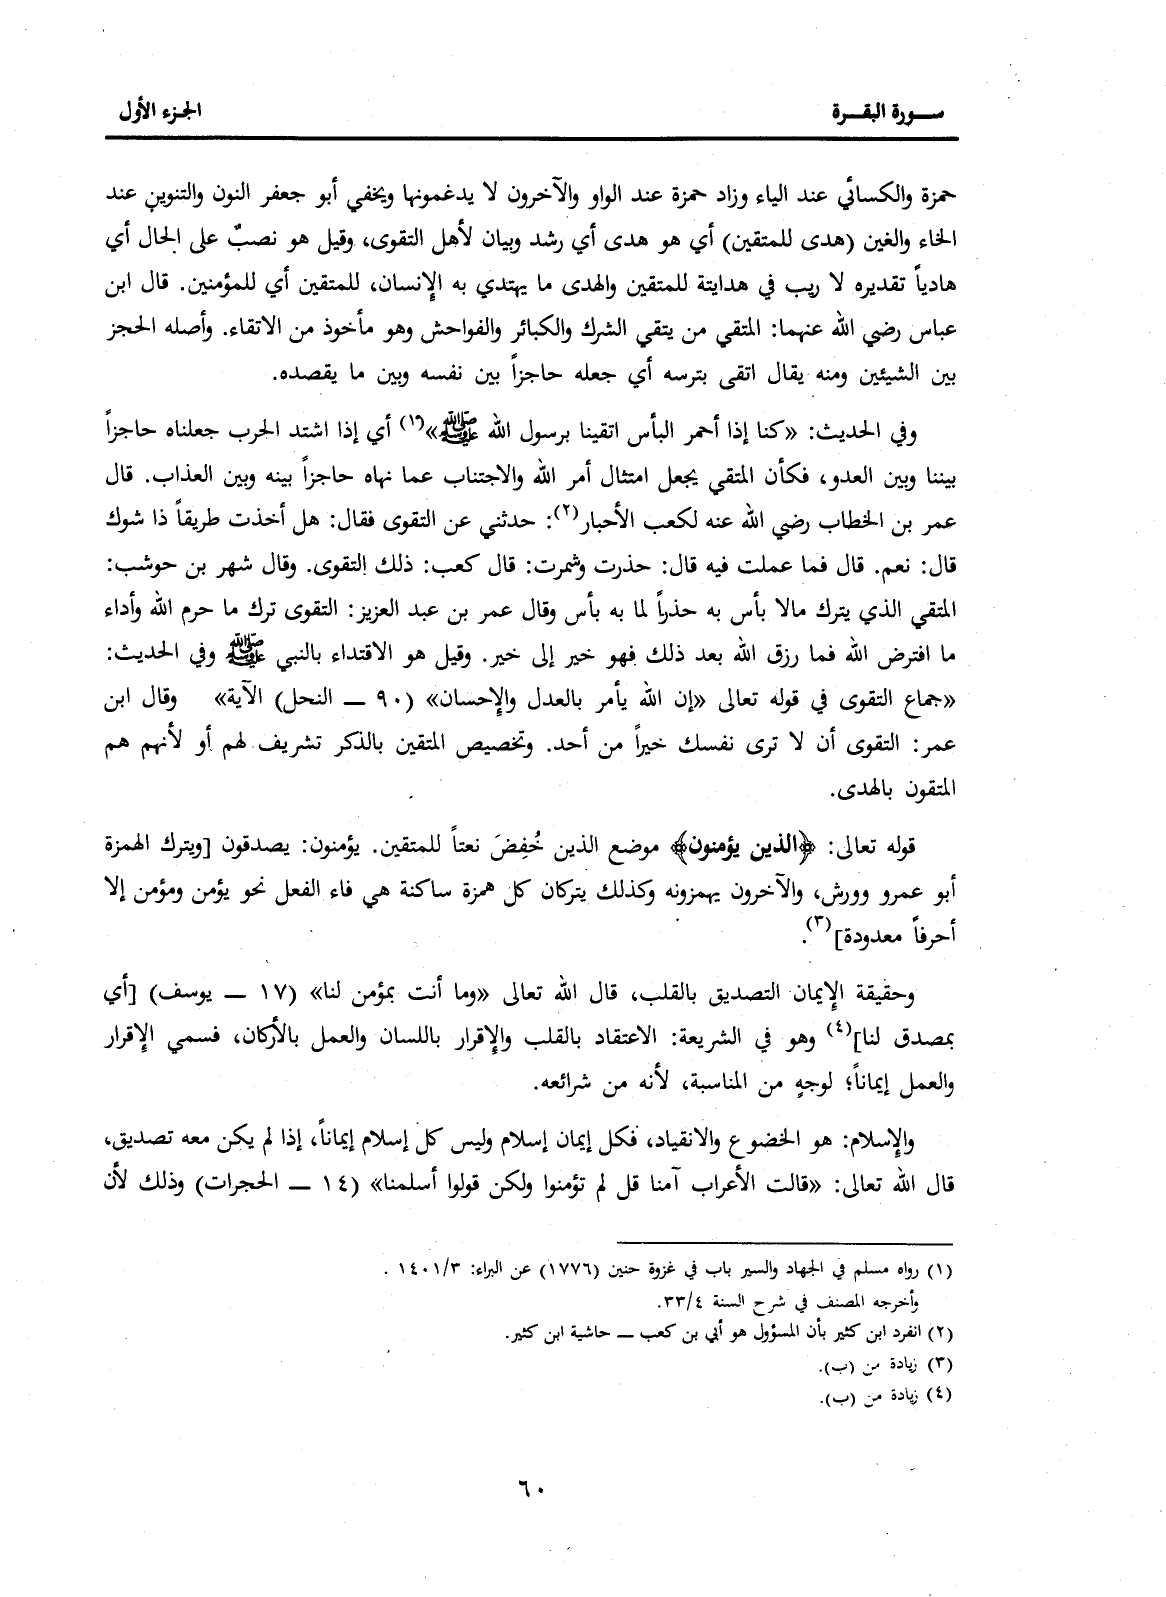 سورة البقرة
الجزء الأول
حمزة والكسائي عند الياء وزاد حمزة عند الواو والآخرون لا يدغمونها ويخفي أبو جعفر النون والتنوين عند
الخاء والغين (هدى للمتقين) أي هو هدى أي رشد وبيان لأهل التقوى، وقيل هو نصبٌ على الحال أي
هادياً تقديره لا ريب في هدايتة للمتقين والهدى ما يهتدي به الإنسان، للمتقين أي للمؤمنين. قال ابن
عباس رضي الله عنهما: المتقي من يتقي الشرك والكبائر والفواحش وهو مأخوذ من الاتقاء. وأصله الحجز
بين الشيئين ومنه يقال اتقى بترسه أي جعله حاجزاً بين نفسه وبين ما يقصده.
وفي الحديث: «كنا إذا أحمر البأس اتقينا برسول الله ﷺ»(١) أي إذا اشتد الحرب جعلناه حاجزاً
بيننا وبين العدو، فكأن المتقي يجعل امتثال أمر الله والاجتناب عما نهاه حاجزاً بينه وبين العذاب. قال
عمر بن الخطاب رضي الله عنه لكعب الأحبار(٢): حدثني عن التقوى فقال: هل أخذت طريقاً ذا شوك
قال: نعم. قال فما عملت فيه قال: حذرت وشمرت: قال كعب: ذلك التقوى. وقال شهر بن حوشب:
المتقي الذي يترك مالا بأس به حذراً لما به بأس وقال عمر بن عبد العزيز: التقوى ترك ما حرم الله وأداء
ما افترض الله فما رزق الله بعد ذلك فهو خير إلى خير. وقيل هو الاقتداء بالنبي ﷺ وفي الحديث:
«جماع التقوى في قوله تعالى «إن الله يأمر بالعدل والإحسان» (٩٠ ــ النحل) الآية» وقال ابن
عمر: التقوى أن لا ترى نفسك خيراً من أحد. وتخصيص المتقين بالذكر تشريف لهم أو لأنهم هم
المتقون بالهدى.
قوله تعالى: ﴿الذين يؤمنون﴾ موضع الذين خُفِضَ نعتاً للمتقين. يؤمنون: يصدقون [ويترك الهمزة
أبو عمرو وورش، والآخرون يهمزونه وكذلك يتركان كل همزة ساكنة هي فاء الفعل نحو يؤمن ومؤمن إلا
أحرفاً معدودة](٣).
وحقيقة الإيمان التصديق بالقلب، قال الله تعالى «وما أنت بمؤمن لنا» (١٧ ــ يوسف) [أي
بمصدق لنا](٤) وهو في الشريعة: الاعتقاد بالقلب والإقرار باللسان والعمل بالأركان، فسمي الإقرار
والعمل إيماناً؛ لوجهٍ من المناسبة، لأنه من شرائعه.
والإسلام: هو الخضوع والانقياد، فكل إيمان إسلام وليس كل إسلام إيماناً، إذا لم يكن معه تصديق،
قال الله تعالى: «قالت الأعراب آمنا قل لم تؤمنوا ولكن قولوا أسلمنا» (١٤ ــ الحجرات) وذلك لأن
(١) رواه مسلم في الجهاد والسير باب في غزوة حنين (١٧٧٦) عن البراء: ١٤٠١/٣ .
وأخرجه المصنف في شرح السنة ٣٣/٤.
(٢) انفرد ابن كثير بأن المسؤول هو أبي بن كعب ــ حاشية ابن كثير.
(٣) زيادة من (ب).
(٤) زيادة من (ب).
٦٠